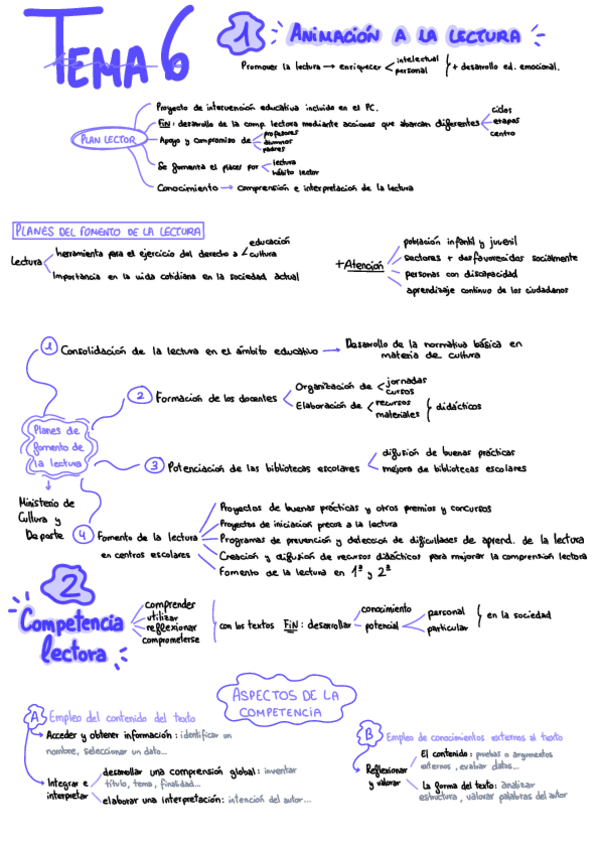 TEMA 6
1 ANIMACIÓN A LA LECTURA
Promover la lectura → enriquecer < intelectual personal } + desarrollo ed. emocional.
PLAN LECTOR
Proyecto de intervención educativa incluido en el PC.
FiN: desarrollo de la comp. lectora mediante acciones que abarcan diferentes < ciclos etapas centro
Apoyo y compromiso de < profesores alumnos padres
Se fomenta el placer por < lectura hábito lector
Conocimiento → comprensión e interpretación de la lectura
PLANES DEL FOMENTO DE LA LECTURA
Lectura
herramienta para el ejercicio del derecho a < educación cultura
Importancia en la vida cotidiana en la sociedad actual
+ Atención
población infantil y juvenil
sectores + desfavorecidos socialmente
personas con discapacidad
aprendizaje continuo de los ciudadanos
Planes de
fomento de
la lectura
↓
Ministerio de
Cultura y
Deporte
1 Consolidación de la lectura en el ámbito educativo → Desarrollo de la normativa básica en
materia de cultura
2 Formación de los docentes
Organización de < jornadas cursos
Elaboración de < recursos materiales } didácticos
3 Potenciación de las bibliotecas escolares
difusión de buenas prácticas
mejora de bibliotecas escolares
4 Fomento de la lectura
en centros escolares
Proyectos de buenas prácticas y otros premios y concursos
Proyectos de iniciacion precoz a la lectura
Programas de prevención y deteccion de dificultades de aprend. de la lectura
Creación y difusión de recursos didácticos para mejorar la comprensión lectora
Fomento de la lectura en 1ª y 2ª
2
Competencia
lectora
comprender
utilizar
reflexionar
comprometerse
con los textos FiN: desarrollar
conocimiento
potencial
personal
particular
} en la sociedad
ASPECTOS DE LA
COMPETENCIA
A Empleo del contenido del texto
Acceder y obtener información: identificar un
nombre, seleccionar un dato...
Integrar e
interpretar
desarrollar una comprensión global: inventar
título, tema, finalidad...
elaborar una interpretación: intención del autor...
B Empleo de conocimientos externos al texto
Reflexionar
y valorar
El contenido: pruebas o argumentos
externos, evaluar datos...
La forma del texto: analizar
estructura, valorar palabras del autor